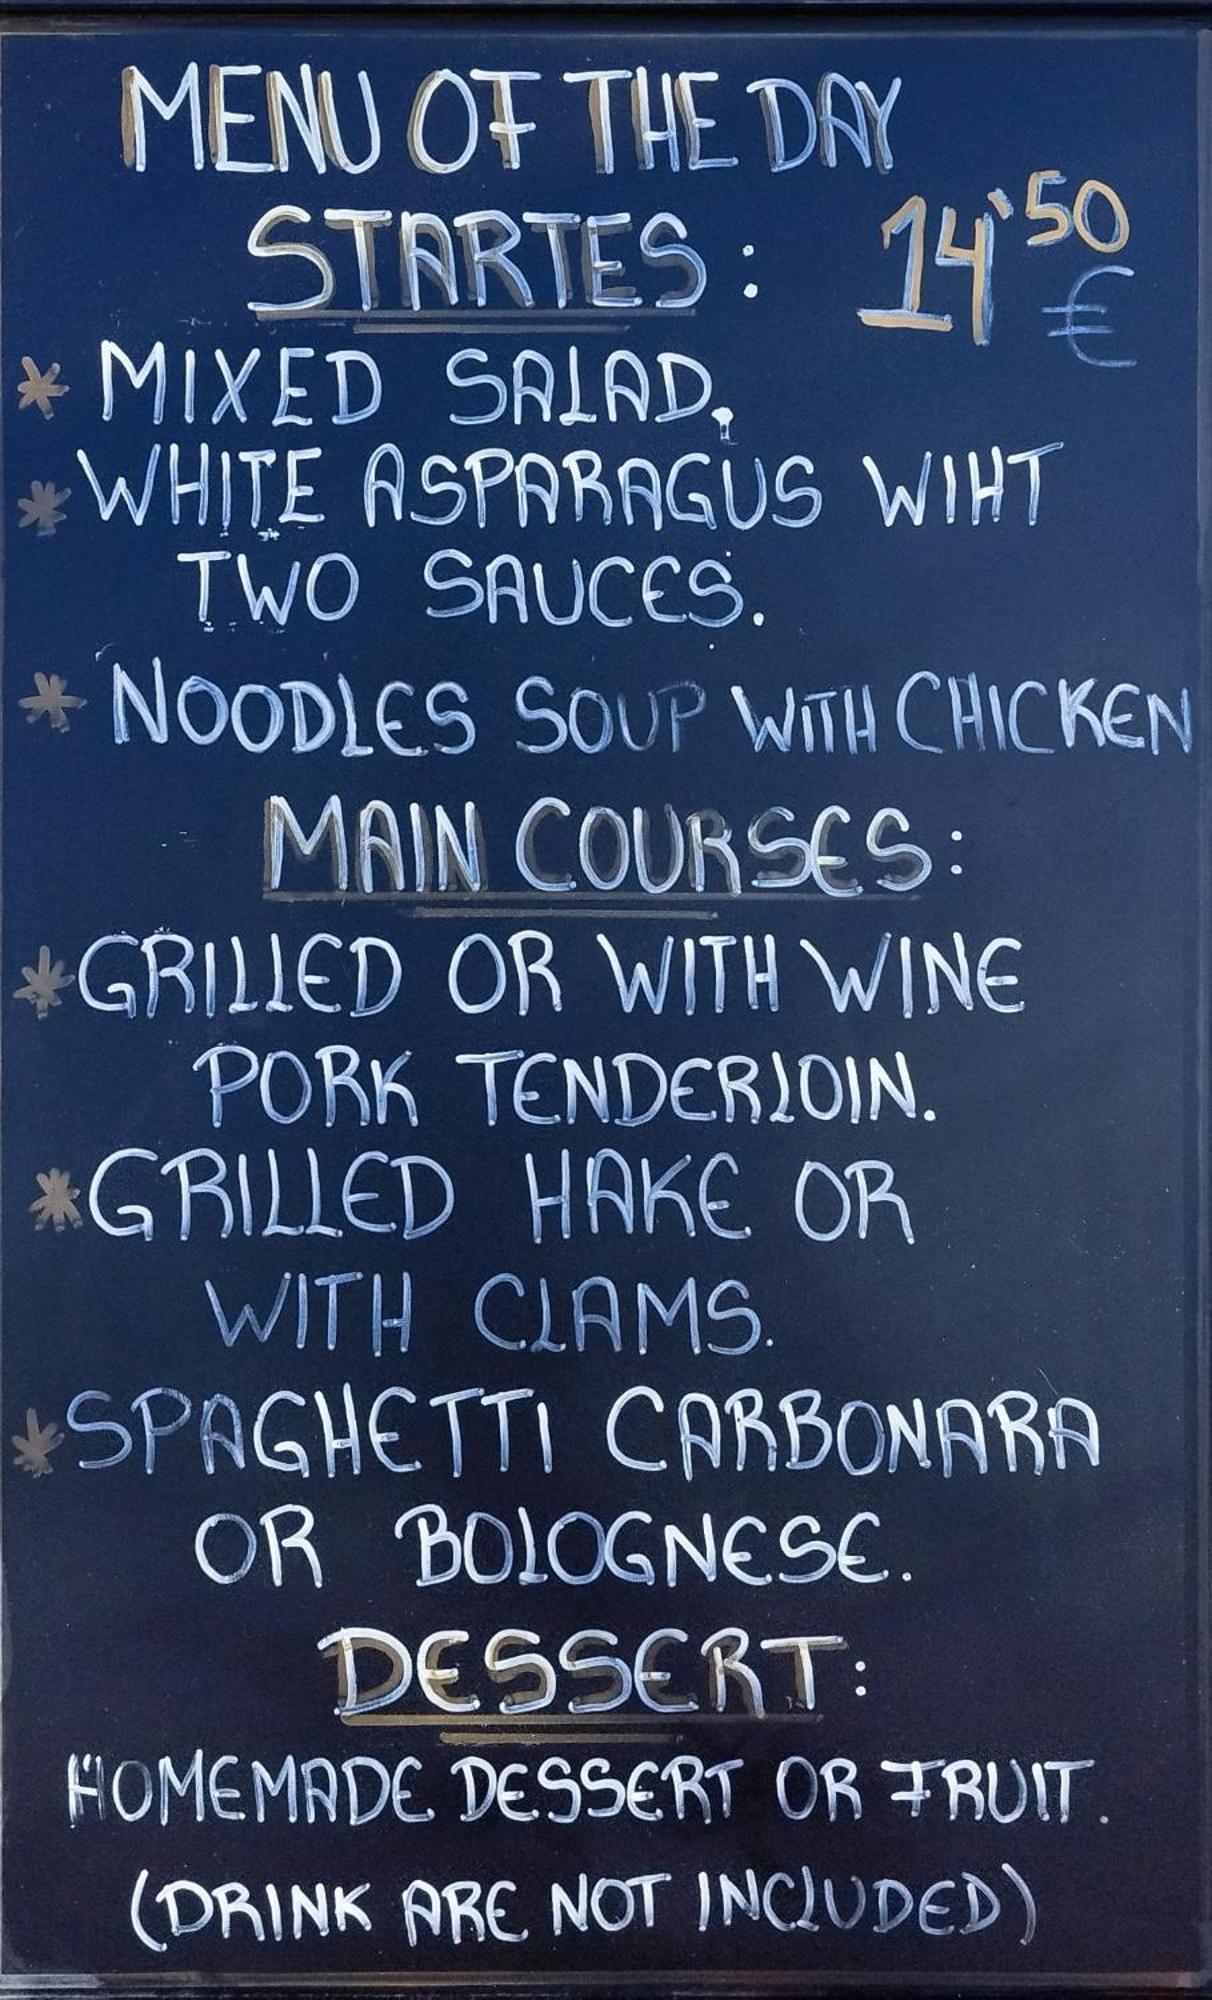 MENU OF THE DAY
STARTES:
14'50
€
* MIXED SALAD,
* WHITE ASPARAGUS WIHT
TWO SAUCES.
* NOODLES SOUP WITH CHICKEN
MAIN COURSES:
* GRILLED OR WITH WINE
PORK TENDERLOIN.
* GRILLED HAKE OR
WITH CLAMS.
* SPAGHETTI CARBONARA
OR BOLOGNESE.
DESSERT:
HOMEMADE DESSERT OR FRUIT.
(DRINK ARE NOT INCLUDED)